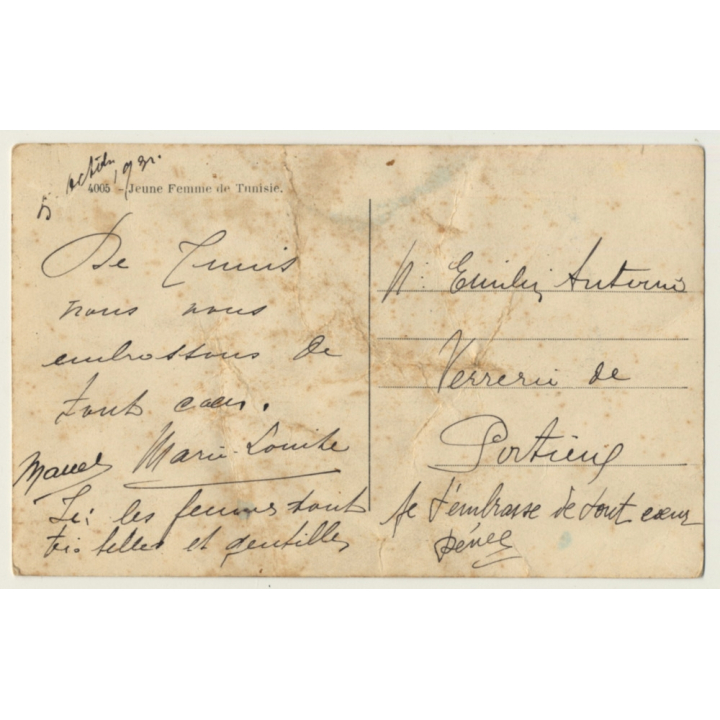 5 octobre
4005 - Jeune Femme de Tunisie.
De Tunis
nous vous
embrassons de
tout coeur.
Marcel Marie-Louise
Ici les femmes sont
très belles et gentilles
M. Antonin
Verrerie de
Portieux
Je t'embrasse de tout coeur